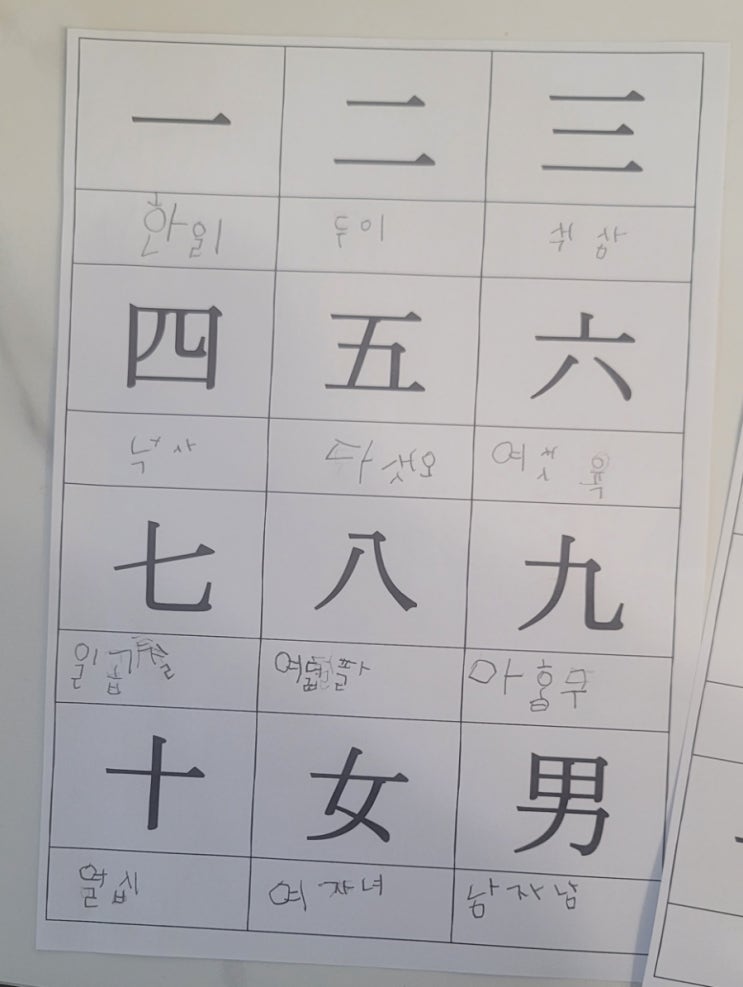 一 二 三
한 일 두 이 석 삼
四 五 六
넉 사 다섯 오 여섯 육
七 八 九
일곱 칠 여덟 팔 아홉 구
十 女 男
열 십 여자 녀 남자 남